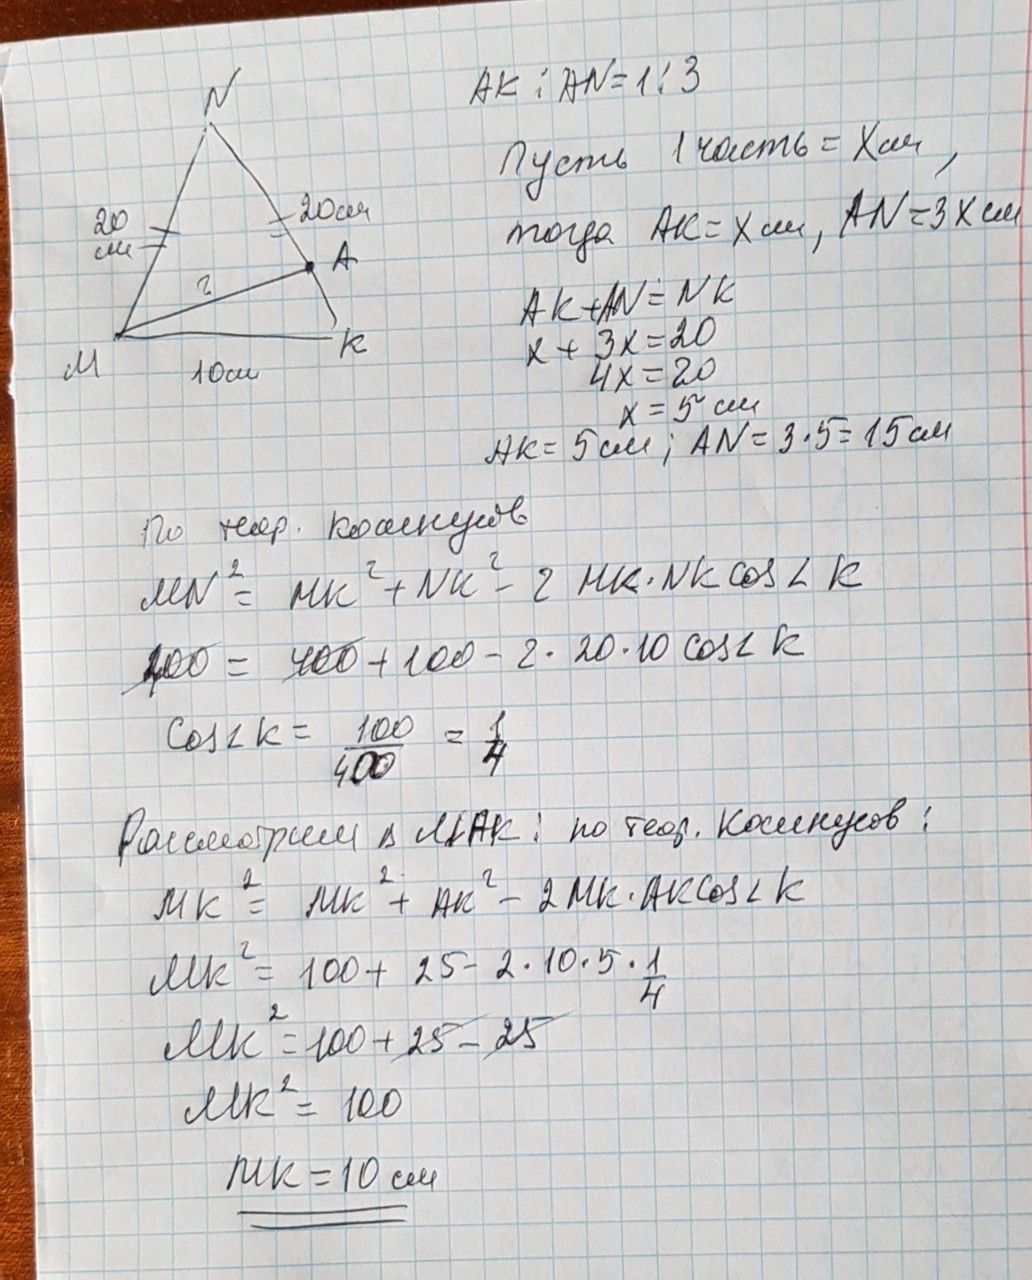 N
20 см
20см
A
?
M
10см
K
AK : AN = 1 : 3
Пусть 1 часть = X см,
тогда AK = X см, AN = 3X см
AK + AN = NK
x + 3x = 20
4x = 20
x = 5 см
AK = 5 см ; AN = 3·5 = 15 см
По теор. косинусов
MN² = MK² + NK² - 2 MK·NK cos∠K
400 = 400 + 100 - 2·20·10 cos∠K
cos∠K = 100/400 = 1/4
Рассмотрим △ MAK : по теор. косинусов :
MK² = MK² + AK² - 2MK·AK cos∠K
MK² = 100 + 25 - 2·10·5·1/4
MK² = 100 + 25 - 25
MK² = 100
MK = 10 см